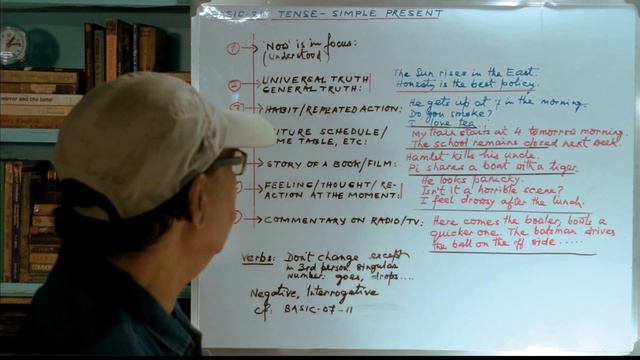 TENSE- SIMPLE PRESENT
'Now' is in focus:
(understood)
UNIVERSAL TRUTH
GENERAL TRUTH:
The Sun rises in the East.
Honesty is the best policy.
HABIT/REPEATED ACTION:
He gets up at 7 in the morning.
Do you smoke?
I love tea.
UTURE SCHEDULE/
ME TABLE, ETC:
My train starts at 4 tomorrow morning.
The school remains closed next week.
STORY OF A BOOK/FILM:
Hamlet kills his uncle.
Pi shares a boat with a tiger.
FEELING/THOUGHT/RE-
ACTION AT THE MOMENT:
He looks panicky.
Isn't it a horrible scene?
I feel drowsy after the lunch.
COMMENTARY ON RADIO/TV:
Here comes the bowler, bowls a
quicker one. The batsman drives
the ball on the off side .....
Verbs: Don't change except
in 3rd person singular
number: goes, drops....
Negative, Interrogative
Cf: BASIC-07-11